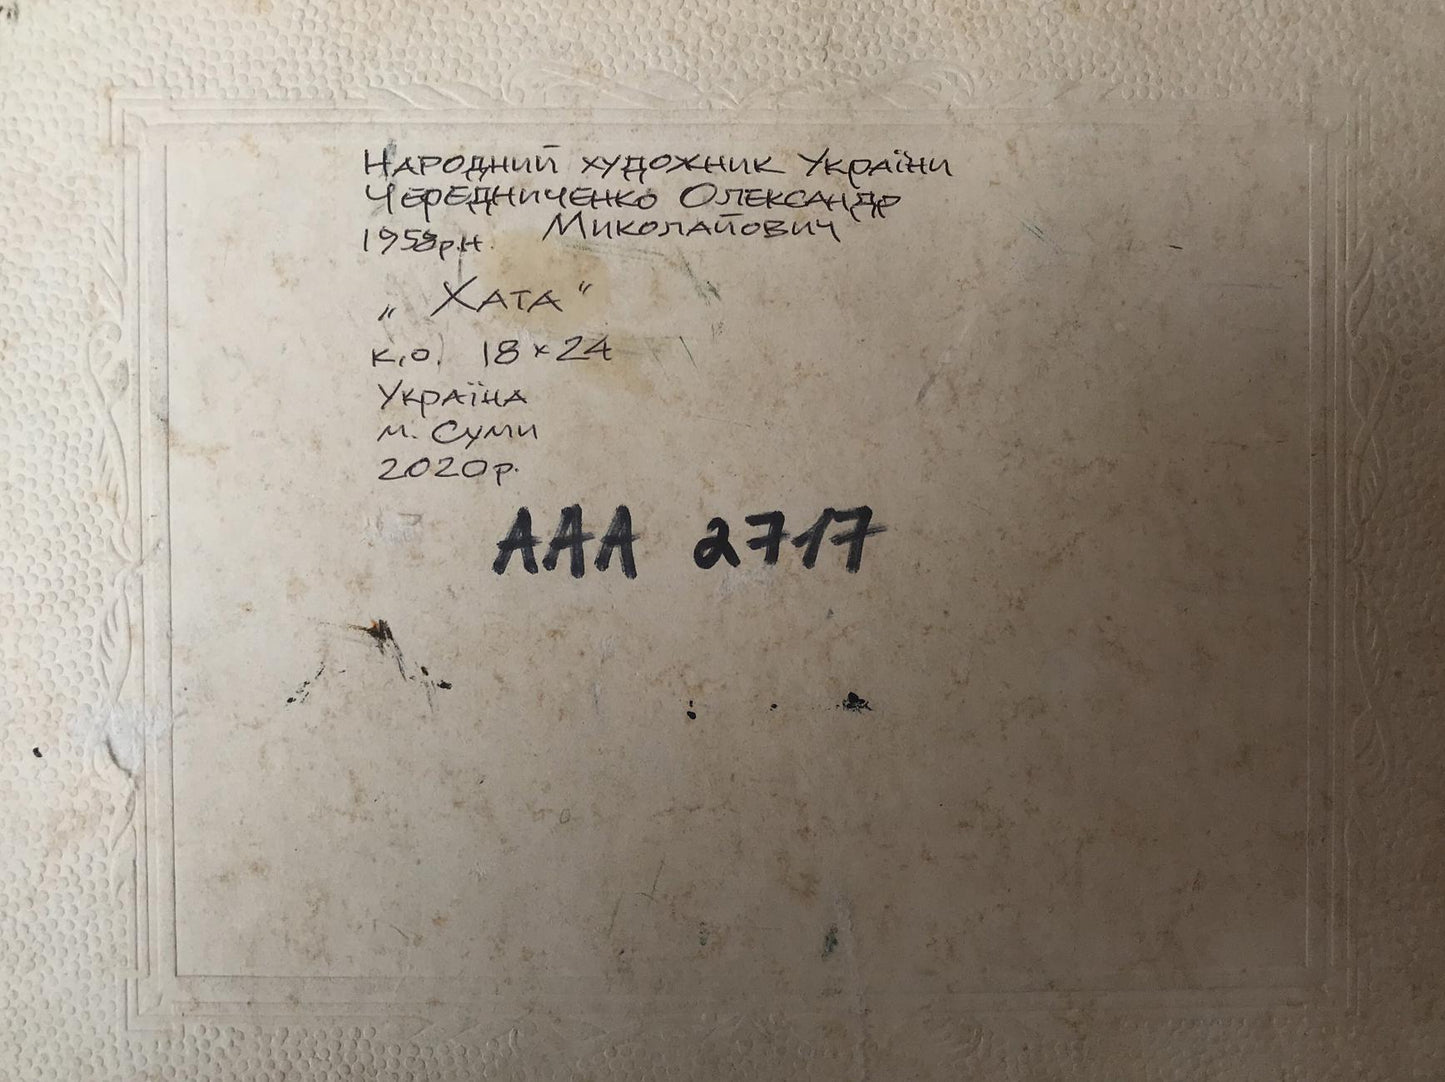 Народний художник України
Чередниченко Олександр
Миколайович
р.н.
„Хата“
к.о. 18×24
Україна
м. Суми
2020р.
ААА 2717